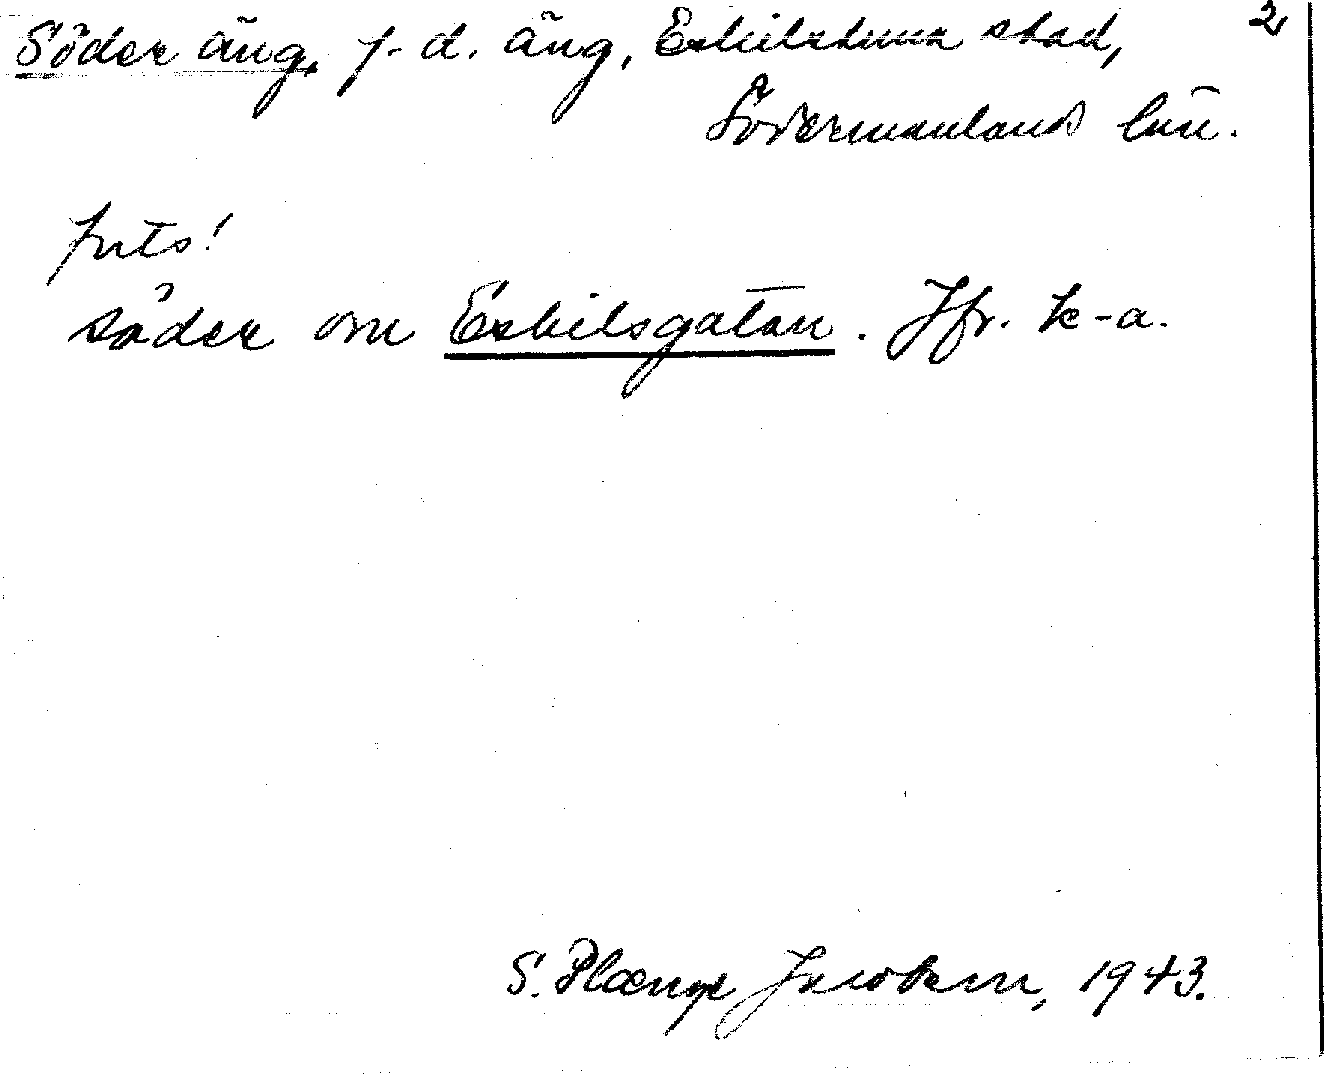 Söder äng, f. d. äng, Eskilstuna stad, 2
Södermanlands län.
forts!
söder om Eskilsgatan. Jfr. k-a.
S. Plænge Jacobson, 1943.